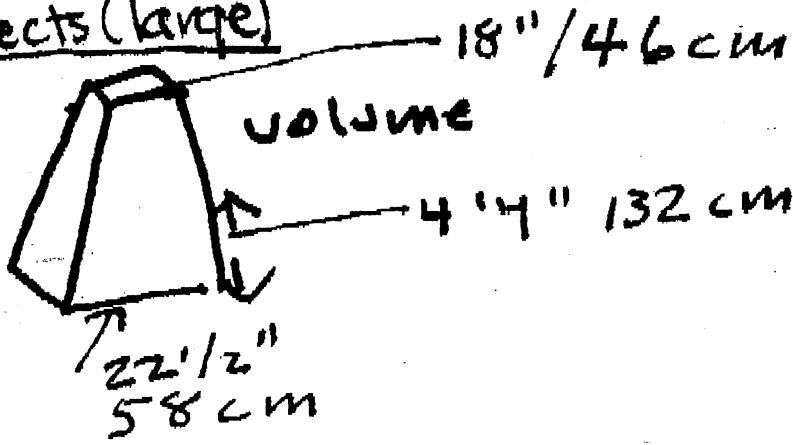 ects (large)
18"/46 cm
volume
4'4" 132 cm
22 1/2"
58 cm